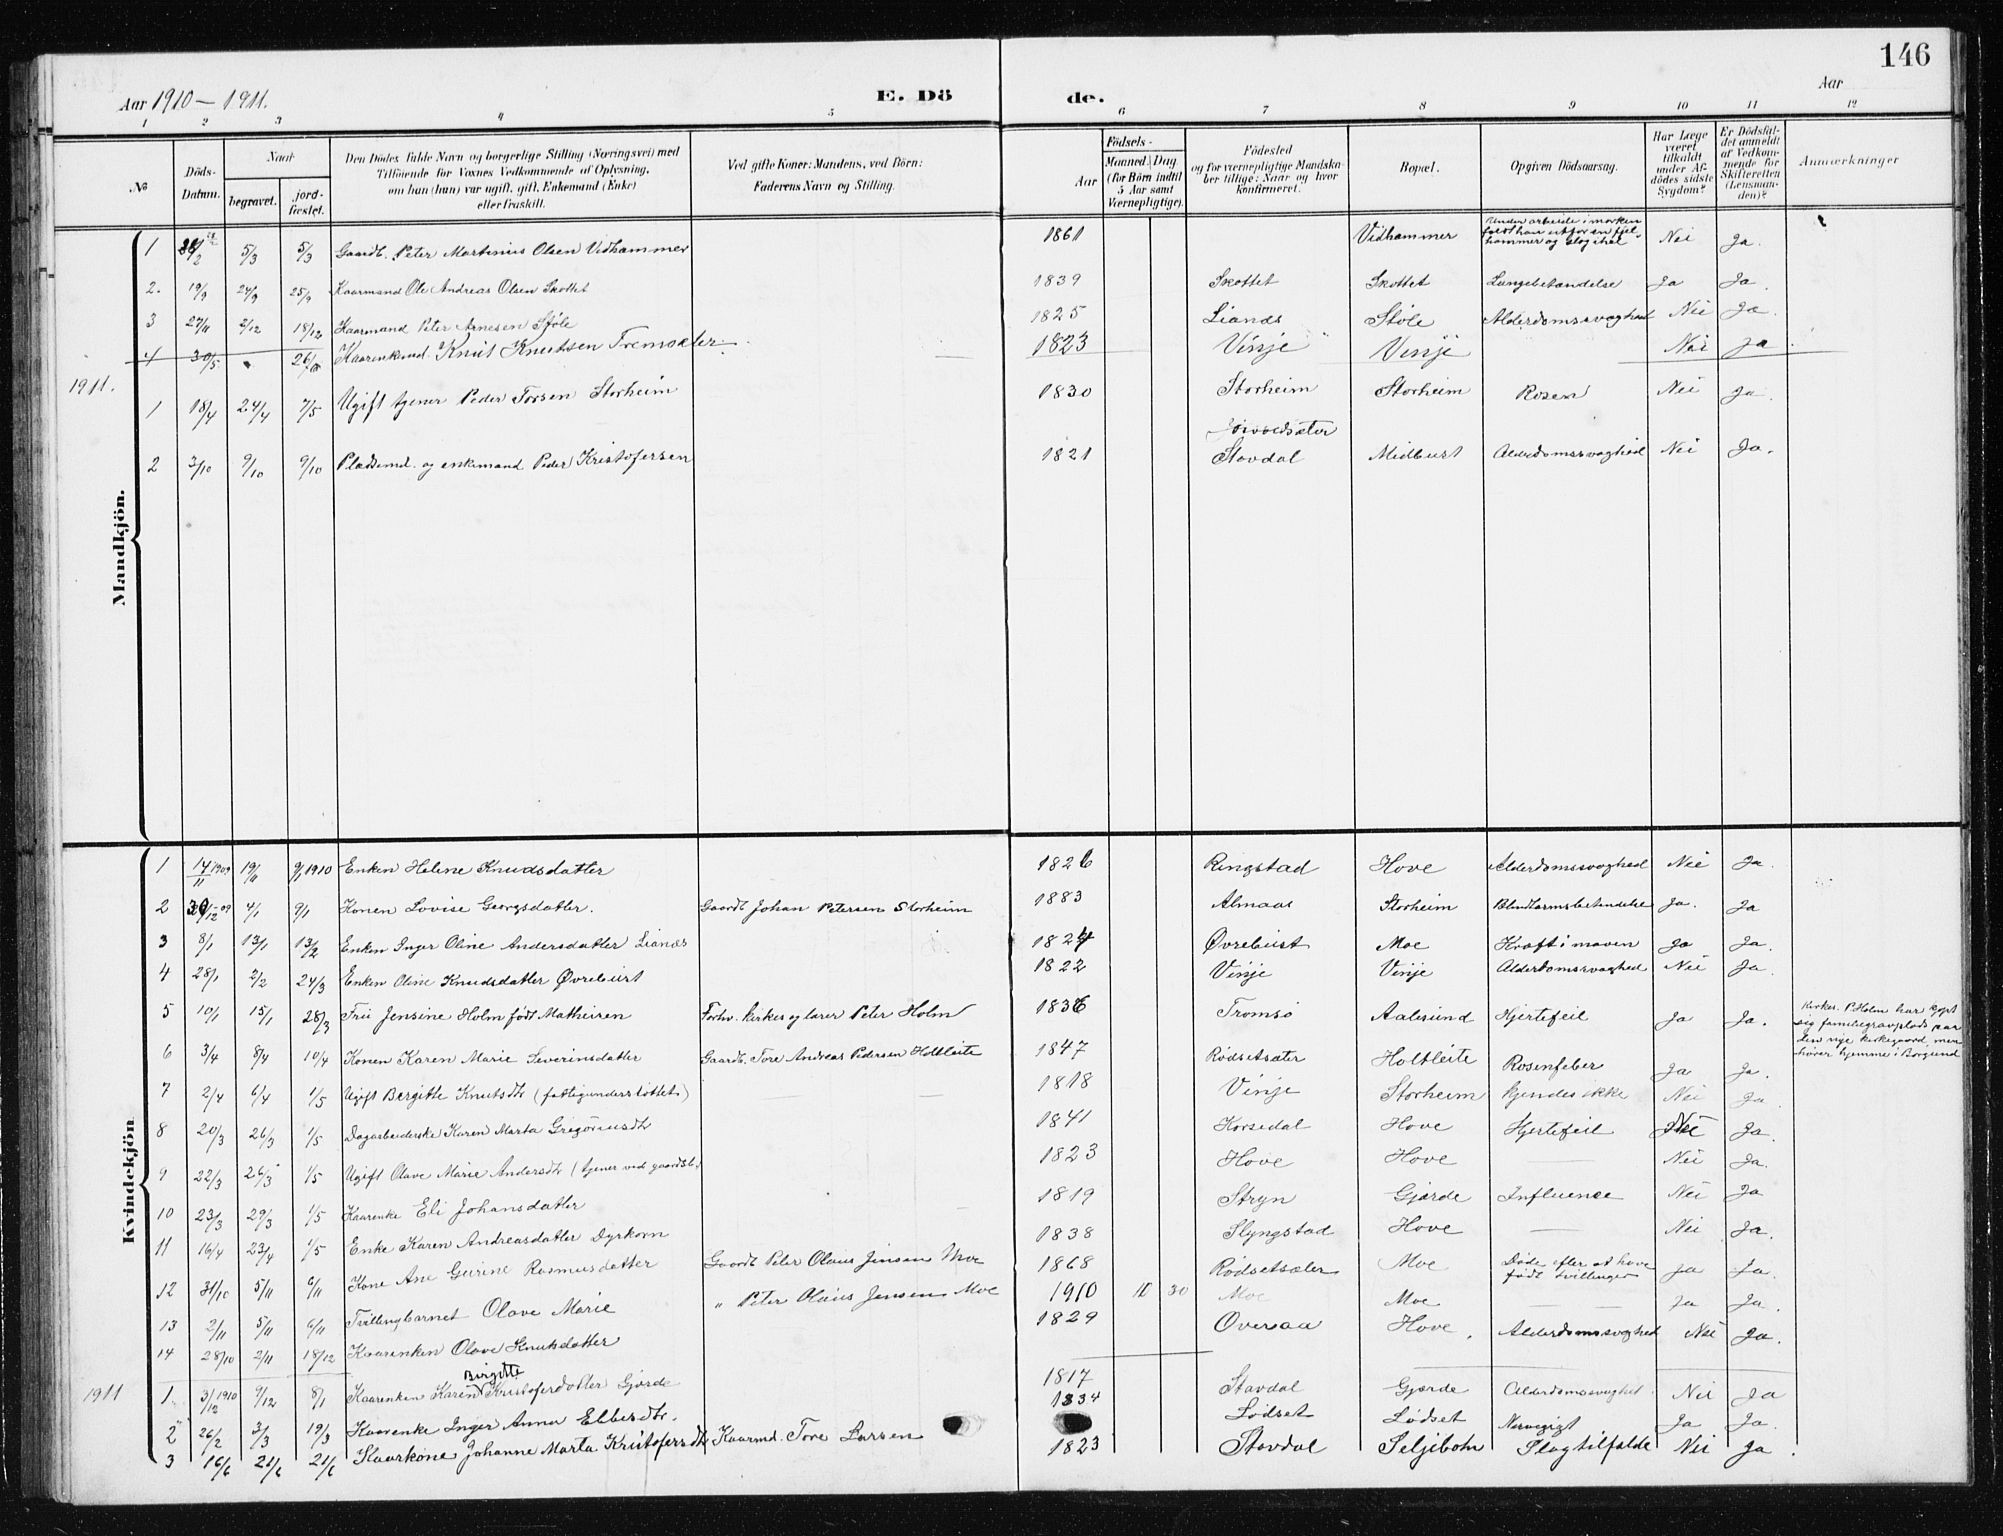 146
Aar 1910 – 1911.
E. Dö
de.
Aar
1 2 3 4 5 6 7 8 9 10 11 12
No
Döds-Datum.
Naar
begravet.
jord-fæstet.
Den Dödes fulde Navn og borgerlige Stilling (Næringsvei) med
Tilföiende for Voxnes Vedkommende af Oplysning,
om han (hun) var ugift, gift, Enkemand (Enke)
eller fraskilt.
Ved gifte Koner: Mandens, ved Börn:
Faderens Navn og Stilling.
Födsels-
Aar
Maaned. Dag
(for Börn indtil
5 Aar samt
Værnepligtige).
Födested
og for værnepligtige Mandska-
ber tillige: Naar og hvor
konfirmeret.
Bopæl.
Opgiven Dödsaarsag.
Har Læge
været
tilkaldt
under Af-
dödes sidste
Sygdom?
Er Dödsfal-
det anmeldt
af Vedkom-
mende for
Skifteretten
(Lensman-
den)?
Anmærkninger
Mandkjön.
1 5/3 5/3 Gaardb. Peter Martinus Olsen Vidhammer 1861 Vidhammer Under arbeide i mørken faldt han utfor en fjel-hammer og slog ihel Nei Ja.
2. 19/9 24/9 25/9 Kaarmand Ole Andreas Olsen Skottet 1839 Skottet Skottet Lungebetændelse Ja Ja.
3 27/11 2/12 18/12 Kaarmand Peter Arnesen Støle 1825 Lianes Støle Alderdomssvaghed Nei Ja.
4 30/5 26/6 Kaarenkemd. Knut Knutsen Tremsæter 1823 Vinje Vinje Nei Ja.
1911.
1 18/4 24/4 7/5 Ugift tjener Peder Torsen Storheim 1830 Storheim Storheim Rosen Nei Ja.
2 3/10 9/10 9/10 Pladsmd. og enkemand Peder Kristofersen 1821 Stavdal Midbust Alderdomssvaghed Nei Ja.
Kvindekjön
1 14/11 1909 19/11 9/1 1910 Enken Helene Knudsdatter 1826 Ringstad Hove Alderdomssvaghed Nei Ja.
2 30/12-09 4/1 9/1 Konen Lovise Georgsdatter. Gaardb Johan Petersen Storheim 1883 Almaas Storheim Blindtarmsbetændelse Ja. Ja
3 8/1 13/1 13/2 Enken Inger Oline Andersdatter Lianes 1824 Øvrebust Moe Kræft i maven Ja Ja.
4 28/1 2/2 24/3 Enken Oline Knudsdatter Øvrebust 1822 Vinje Vinje Alderdomssvaghed Nei Ja.
5 10/1 15/1 28/3 Fru Jensine Holm født Mathesen Forhv. kirkesg lærer Peter Holm 1836 Tromsø Aalesund Hjertefeil Ja Ja. Kirkes. P. Holm har kjøpt sig familiegravplads paa den nye kirkegaard, men hører hjemme i Borgund
6 3/4 8/4 10/4 Konen Karen Marie Severinsdatter Gaardb. Tore Andreas Pedersen Holtleite 1847 Rødsetsæter Holtleite Rosenfeber Ja Ja.
7 2/4 6/4 1/5 Ugift Bergitte Knutsdtr (fattigunderstøttet) 1818 Vinje Storheim kjendes ikke Nei Ja.
8 20/3 26/3 1/5 Dagarbeiderske Karen Marta Gregoriusdtr 1841 Korsedal Hove Hjertefeil Nei Ja.
9 22/3 26/3 1/5 Ugift Olave Marie Andersdtr (tjener ved gaardsb.) 1823 Hove Hove — Nei Ja.
10 23/3 29/3 1/5 Kaarenke Eli Johansdatter 1819 Stryn Gjærde Influence Nei Ja
11 16/4 23/4 1/5 Enke Karen Andreasdatter Dyrkorn 1838 Slyngstad Hove — Nei Ja.
12 31/10 5/11 6/11 Kone Ane Gurine Rasmusdatter Gaardb Peter Olaus Jensen Moe 1868 Rødsetsæter Moe Døde efter at have født tvillinger Ja Ja.
13 2/11 5/11 6/11 Tvillingbarnet Olave Marie " Peter Olaus Jensen Moe 1910 10 30 Moe Moe — Ja Ja.
14 28/10 2/11 18/12 Kaarenken Olave Knutsdatter 1829 Overaa Hove. Alderdomssvaghed Nei Ja.
1911
1. 3/12 1910 9/12 8/1 Kaarenken Karen Birgitte Kristoferdatter Gjærde 1817 Stavdal Gjærde Alderdomssvaghet. Nei Ja
2 26/2 3/3 19/3 Kaarenke Inger Anna Ellesdtr. 1834 Lødset Lødset Ja Ja.
3 16/6 21/6 21/6 Kaarkone Johanne Marta Kristofersdtr Kaarmd. Tore Larsen 1823 Stavdal Seljebotn Slagtilfælde Nei Ja.